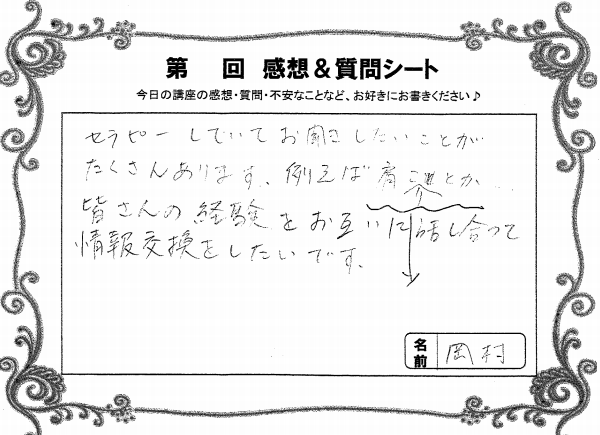 第 回 感想&質問シート
今日の講座の感想・質問・不安なことなど、お好きにお書きください♪
セラピーしていてお聞きしたいことが
たくさんあります、例えば肩こりとか...
皆さんの経験をお互いに話し合って
情報交換をしたいです。
名前 岡村